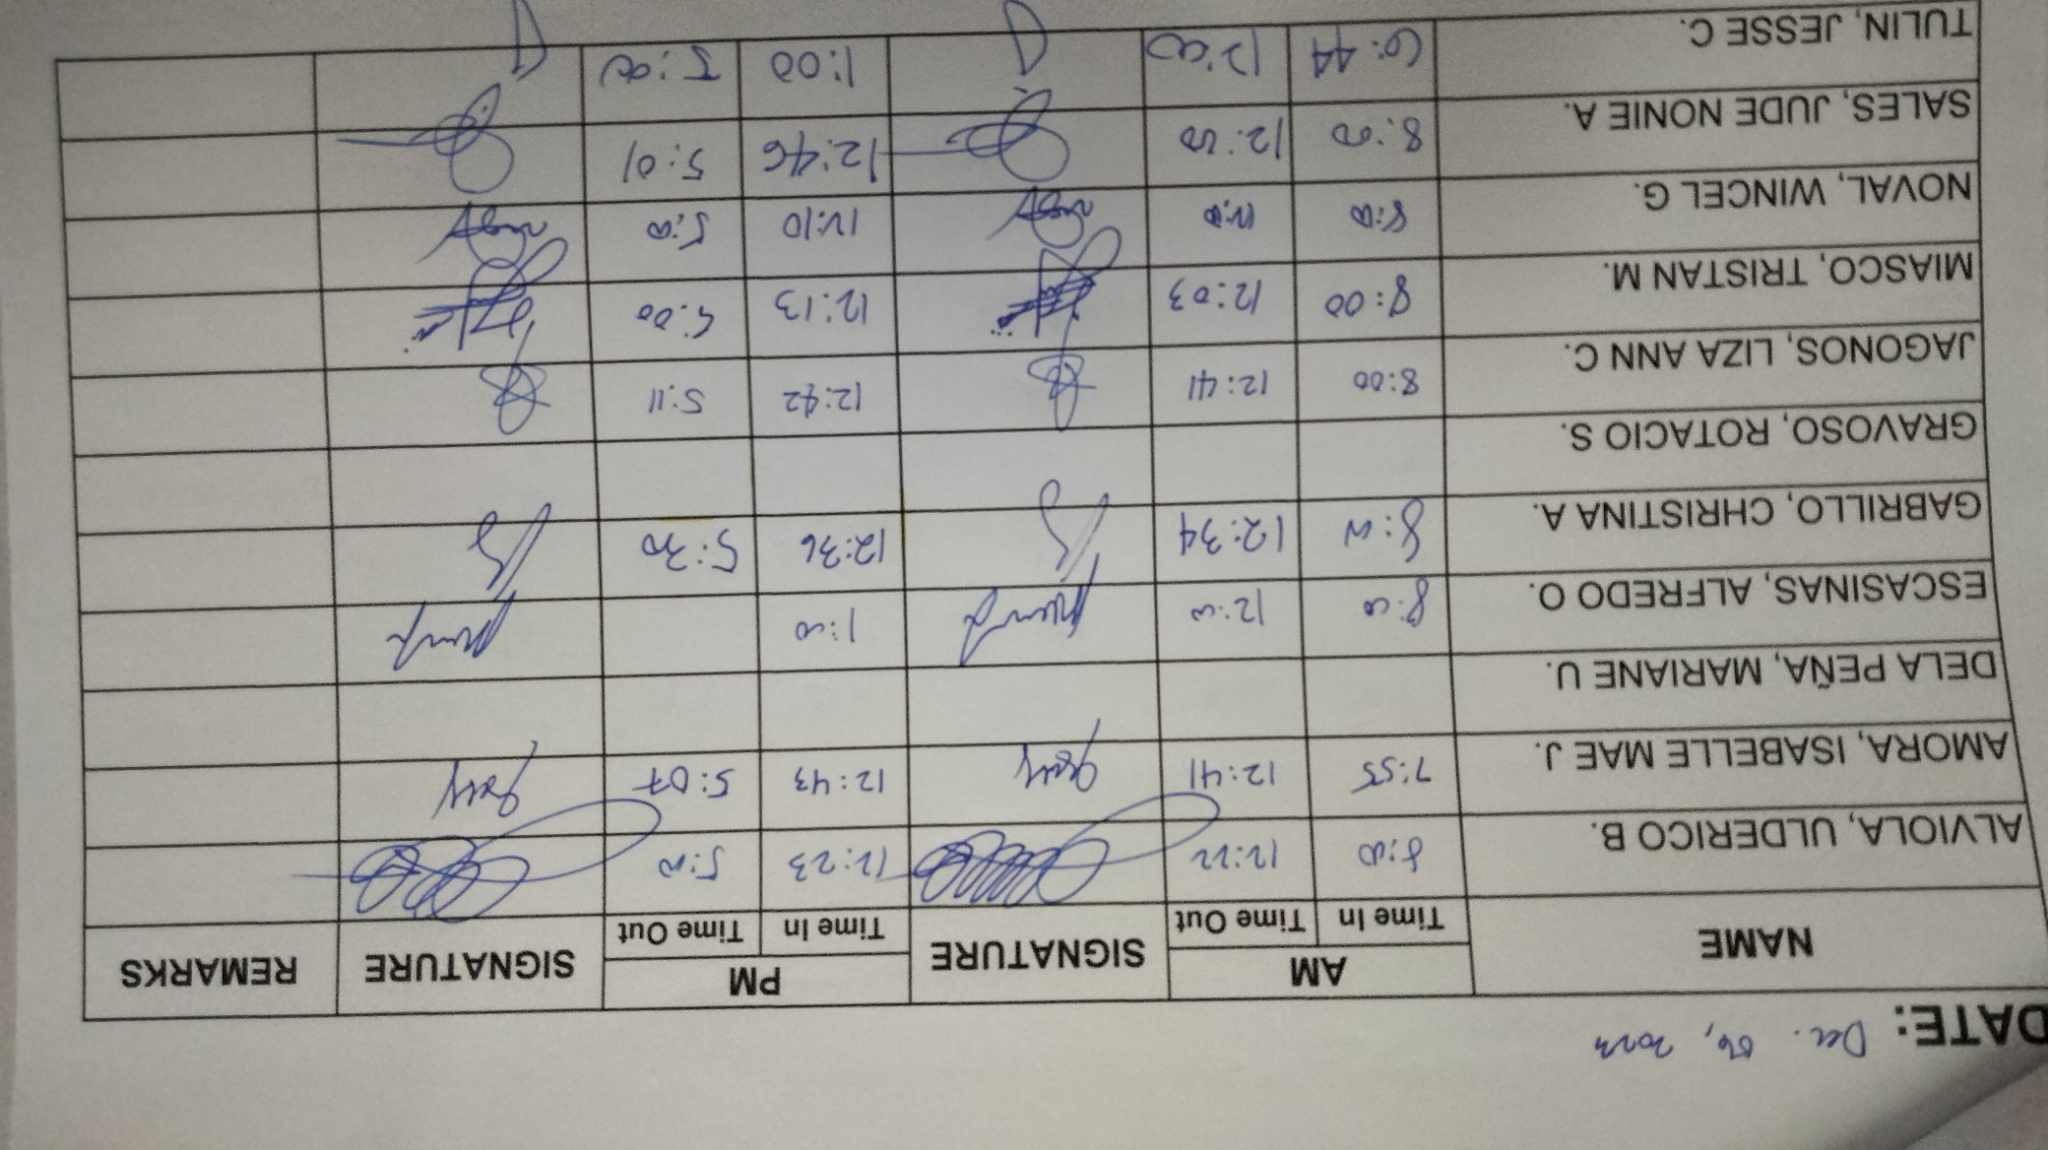 DATE: Dec. 06,
NAME AM SIGNATURE PM SIGNATURE REMARKS
Time In Time Out Time In Time Out
ALVIOLA, ULDERICO B. 8:00 12:22 12:23 5:00
AMORA, ISABELLE MAE J. 7:55 12:41 12:43 5:07
DELA PEÑA, MARIANE U.
ESCASINAS, ALFREDO O. 8:00 12:00 1:00
GABRILLO, CHRISTINA A. 8:00 12:34 12:36 5:30
GRAVOSO, ROTACIO S.
JAGONOS, LIZA ANN C. 8:00 12:41 12:42 5:11
MIASCO, TRISTAN M. 8:00 12:03 12:13 5:00
NOVAL, WINCEL G. 8:00 12:00 12:10 5:00
SALES, JUDE NONIE A. 8:00 12:00 12:46 5:01
TULIN, JESSE C. 6:44 12:00 1:00 5:00